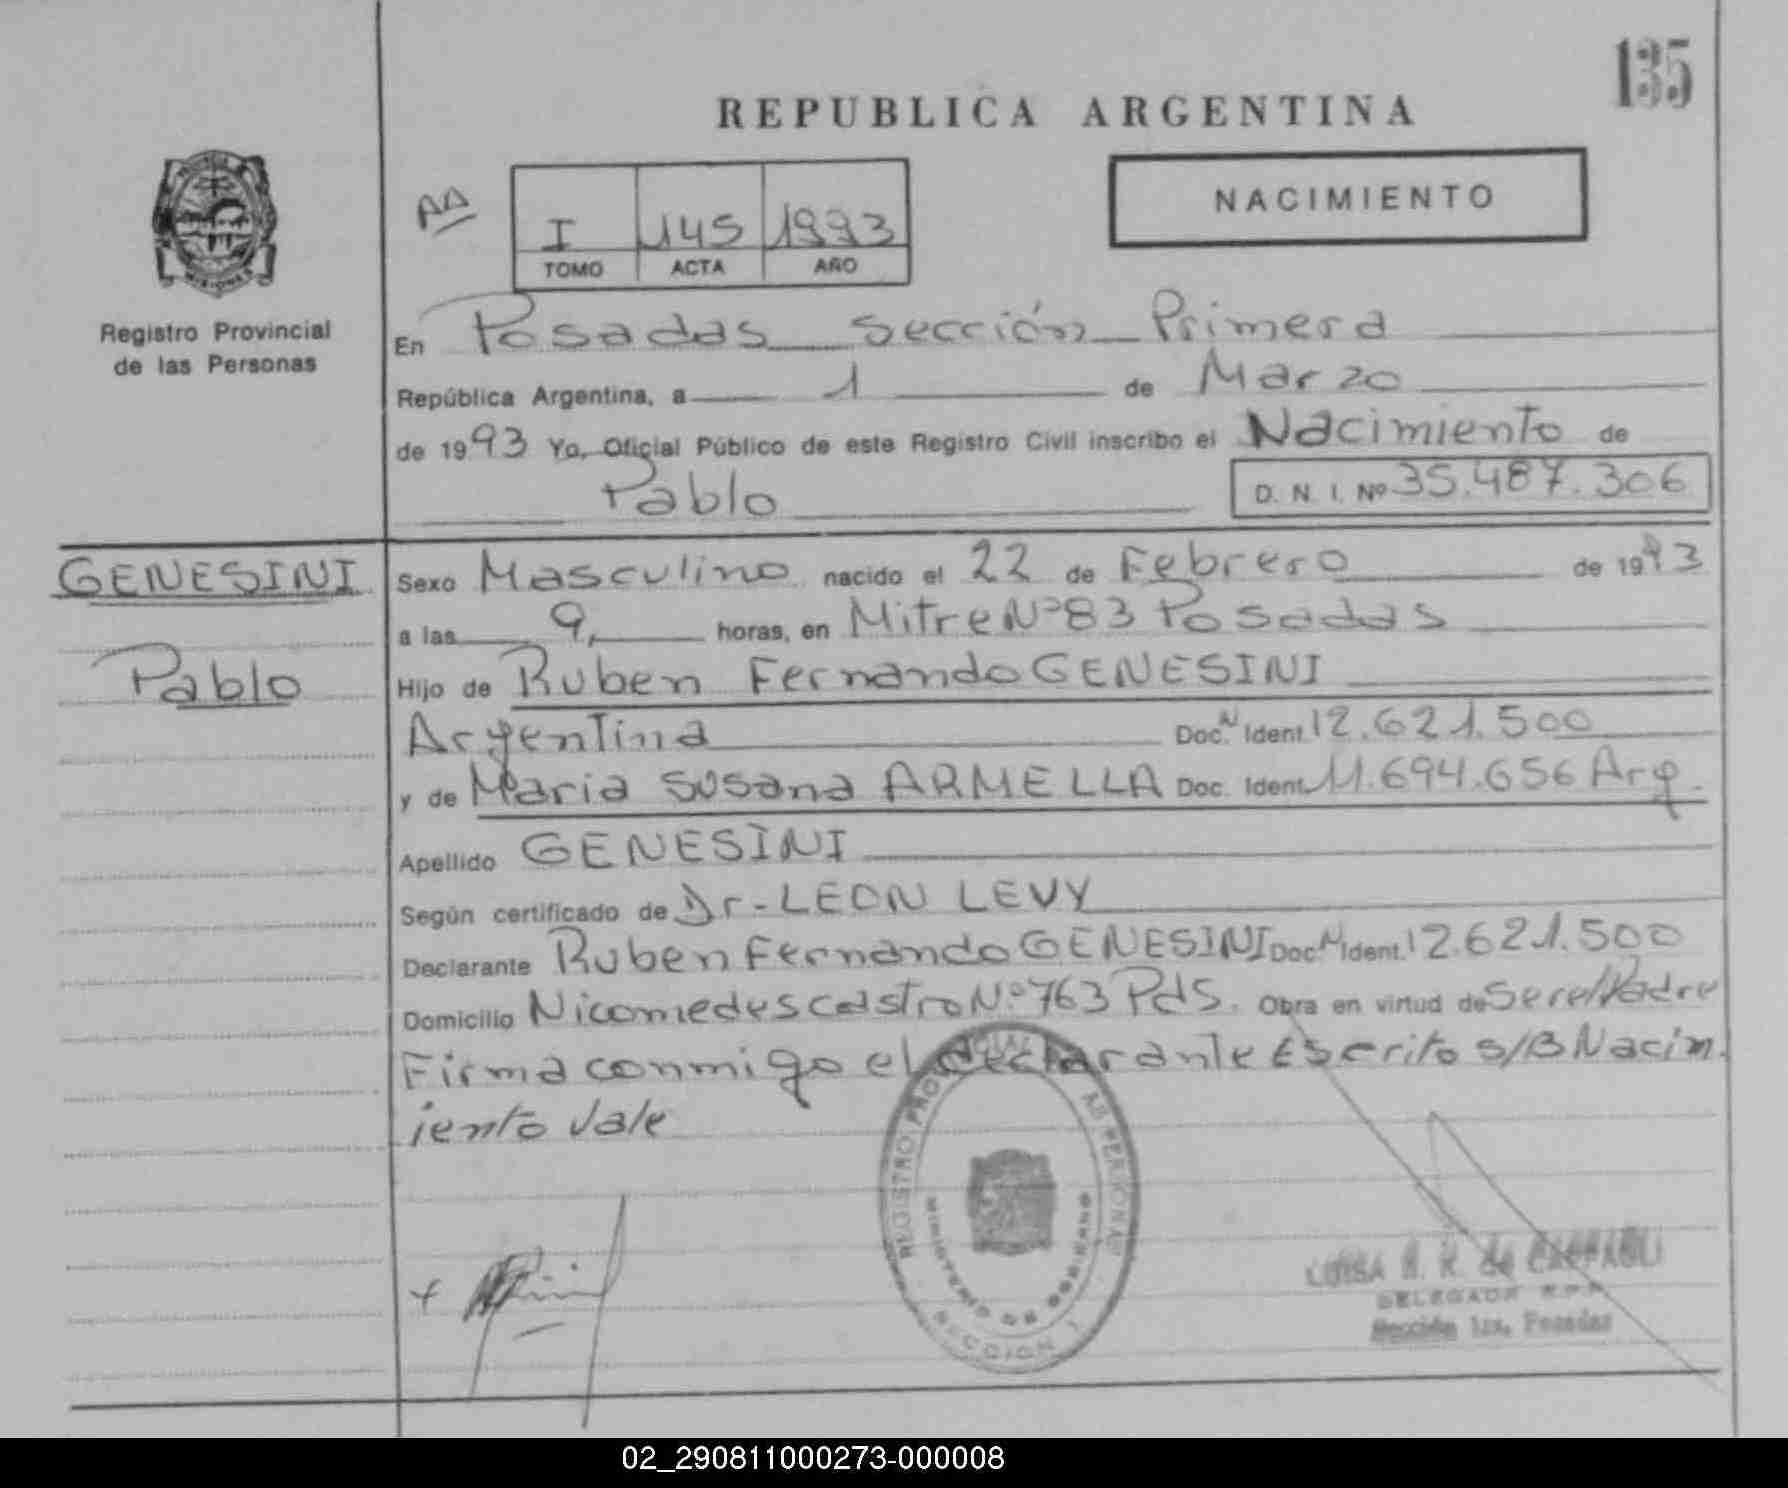 135
REPUBLICA ARGENTINA
NACIMIENTO
AA
I 145 1993
TOMO ACTA AÑO
MISIONES
Registro Provincial
de las Personas
En Posadas Sección Primera
República Argentina, a 1 de Marzo
de 1993 Yo, Oficial Público de este Registro Civil inscribo el Nacimiento de
Pablo D. N. I. Nº 35.487.306
GENESINI
Pablo
Sexo Masculino nacido el 22 de Febrero de 1993
a las 9, horas, en Mitre Nº 83 Posadas
Hijo de Ruben Fernando GENESINI
Argentina Doc. N Ident. 12.621.500
y de Maria Susana ARMELLA Doc. Ident. 11.694.656 Arg.
Apellido GENESINI
Según certificado de Dr- LEON LEVY
Declarante Ruben Fernando GENESINI Doc. N Ident. 12.621.500
Domicilio Nicomedes Castro Nº 763 Pds. Obra en virtud de Ser el Padre
Firma conmigo el declarante Escrito s/B Nacim
iento Vale
REGISTRO PROVINCIAL DE LAS PERSONAS
MINISTERIO DE GOBIERNO
SECCION 1
LUISA de
DELEGADA R.P.P.
Sección 1ra. Posadas
02_290811000273-000008